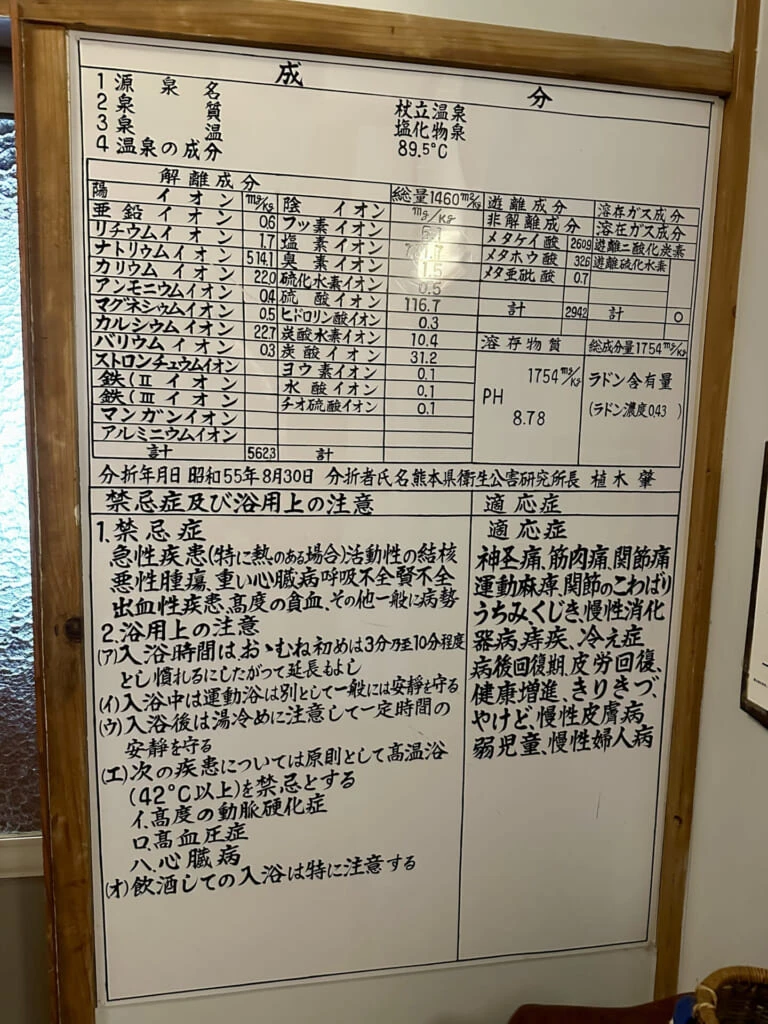 成分
1 源泉名 杖立温泉
2 泉質 塩化物泉
3 泉温 89.5℃
4 温泉の成分
解離成分
陽イオン mg/Kg
亜鉛イオン 0.6
リチウムイオン 1.7
ナトリウムイオン 514.1
カリウムイオン 22.0
アンモニウムイオン 0.4
マグネシウムイオン 0.5
カルシウムイオン 22.7
バリウムイオン 0.3
ストロンチュウムイオン
鉄(Ⅱイオン
鉄(Ⅲイオン
マンガンイオン
アルミニウムイオン
計 562.3
陰イオン 総量1460mg/Kg
mg/Kg
フッ素イオン
塩素イオン
臭素イオン 1.5
硫化水素イオン 0.5
硫酸イオン 116.7
ヒドロリン酸イオン 0.3
炭酸水素イオン 10.4
炭酸イオン 31.2
ヨウ素イオン 0.1
水酸イオン 0.1
チオ硫酸イオン 0.1
計
遊離成分
非解離成分
メタケイ酸 260.9
メタホウ酸 32.6
メタ亜砒酸 0.7
計 294.2
溶存ガス成分
溶在ガス成分
遊離二酸化炭素
遊離硫化水素
計 0
溶存物質
1754mg/Kg
PH
8.78
総成分量1754mg/Kg
ラドン含有量
(ラドン濃度0.43 )
分折年月日 昭和55年8月30日 分折者氏名熊本県衛生公害研究所長 植木 肇
禁忌症及び浴用上の注意
1.禁忌症
急性疾患(特に熱のある場合)活動性の結核
悪性腫瘍、重い心臓病呼吸不全腎不全
出血性疾患、高度の貧血、その他一般に病勢
2.浴用上の注意
(ア)入浴時間は、おゝむね初めは3分乃至10分程度
とし慣れるにしたがって延長もよし
(イ)入浴中は運動浴は別として一般には安静を守る
(ウ)入浴後は湯冷めに注意して一定時間の
安静を守る
(エ)次の疾患については原則として高温浴
(42℃以上)を禁忌とする
イ.高度の動脈硬化症
ロ.高血圧症
ハ.心臓病
(オ)飲酒しての入浴は特に注意する
適応症
適応症
神圣痛、筋肉痛、関節痛
運動麻痺、関節のこわばり
うちみ、くじき、慢性消化
器病、痔疾、冷え症
病後回復期、皮労回復、
健康増進、きりきづ、
やけど、慢性皮膚病
弱児童、慢性婦人病